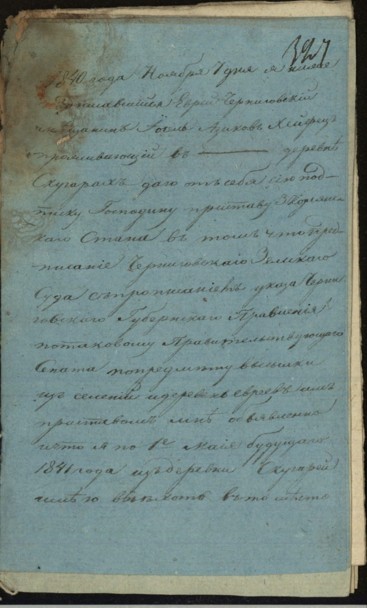 327
1840 года Ноября 7 дня я ниже
подписавшийся Еврей Черниговский
мещанин Айзиков Хейфец
проживающий в ——— деревне
даю от себя сию под-
писку Господину приставу 3
Стана в том что пред-
писание Черниговского Земского
Суда с прописанием указа Черни-
говского Губернского Правления
потаковому Правительствующего
Сената попредмету высылки
из селений и деревень евреев им
приставом мне объявлено
и что я по 1е Мая будущаго
1841 года из деревни
имею выехать в то место